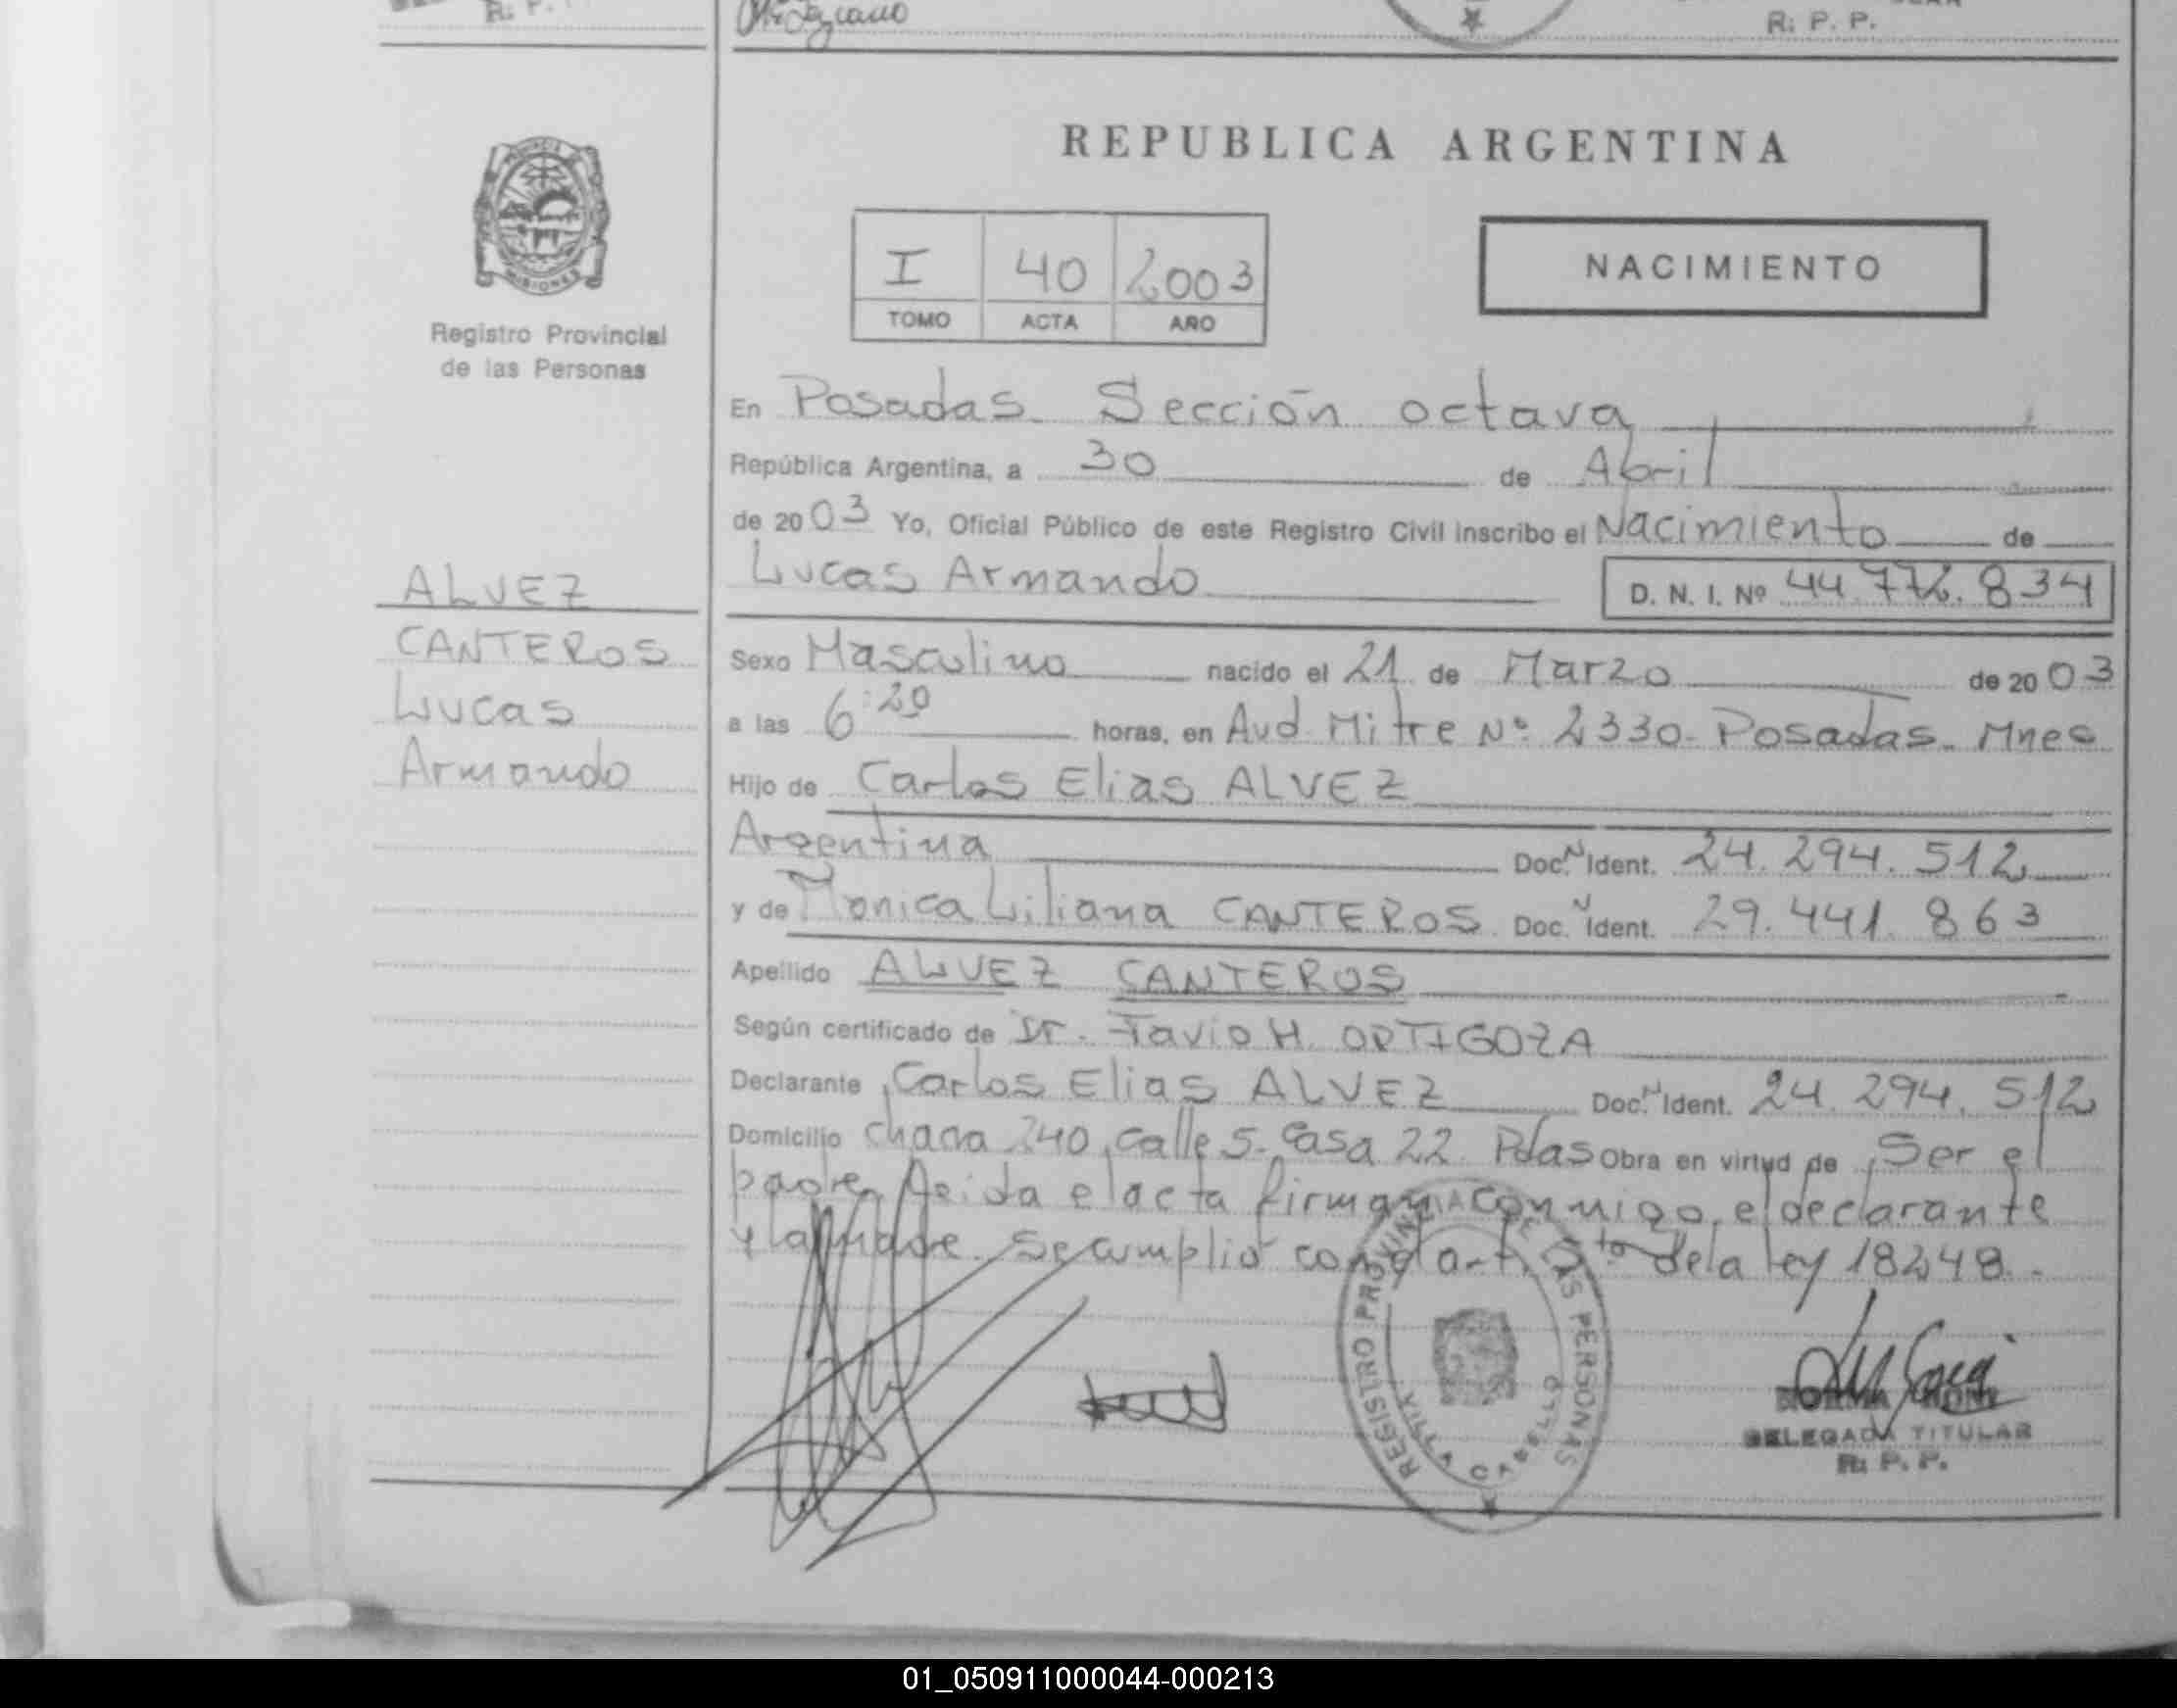 R. P. P.
R. P. P.
REPUBLICA ARGENTINA
PROVINCIA DE
MISIONES
Registro Provincial
de las Personas
I 40 2003
TOMO ACTA AÑO
NACIMIENTO
En Posadas. Sección octava
República Argentina, a 30 de Abril
de 2003 Yo, Oficial Público de este Registro Civil inscribo el Nacimiento de
Lucas Armando D. N. I. Nº 44.772.834
ALVEZ
CANTEROS
Lucas
Armando
Sexo Masculino nacido el 21 de Marzo de 2003
a las 6:20 horas, en Avd. Mitre Nº 2330- Posadas- Mnes
Hijo de Carlos Elias ALVEZ
Argentina Doc. N Ident. 24.294.512
y de Monica Liliana CANTEROS Doc. N Ident. 29.441.863
Apellido ALVEZ CANTEROS
Según certificado de Dr. Favio H. ORTIGOZA
Declarante Carlos Elias ALVEZ Doc. N Ident. 24.294.512
Domicilio Chacra 240, calle 5- Casa 22 Pdas Obra en virtud de Ser el
padre. Leida el acta firman conmigo, el declarante
y la madre. Se cumplió con el art. 5to de la ley 18248.
REGISTRO PROVINCIAL DE LAS PERSONAS
VILLA CABELLO
NORMA
DELEGADA TITULAR
R. P. P.
01_050911000044-000213